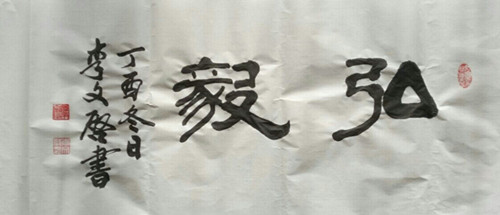 弘毅
丁酉冬日
李文啓書